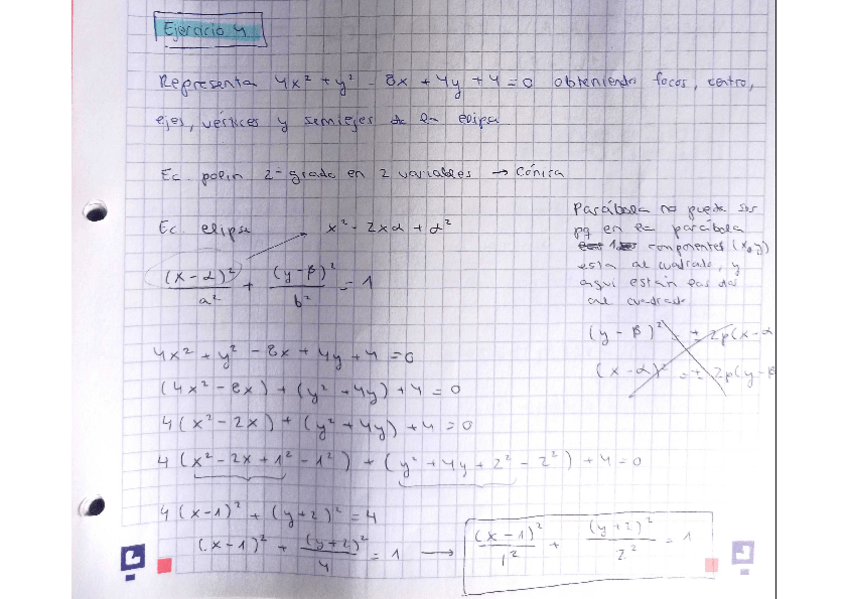 Ejercicio 4
Representa 4x² + y² - 8x + 4y + 4 = 0 obteniendo focos, centro,
ejes, vértices y semiejes de la elipse
Ec. polin 2º grado en 2 variables → Cónica
Ec. elipse x² - 2xα + α²
(x-α)²/a² + (y-β)²/b² = 1
Parábola no puede ser
pq en la parábola
componentes (x o y)
esta al cuadrado, y
aqui están las dos
al cuadrado
(y - β)² = ± 2p(x-α
(x - α)² = ± 2p(y-β
4x² + y² - 8x + 4y + 4 = 0
(4x² - 8x) + (y² + 4y) + 4 = 0
4(x² - 2x) + (y² + 4y) + 4 = 0
4(x² - 2x + 1² - 1²) + (y² + 4y + 2² - 2²) + 4 = 0
4(x-1)² + (y+2)² = 4
(x-1)² + (y+2)²/4 = 1 → (x-1)²/1² + (y+2)²/2² = 1